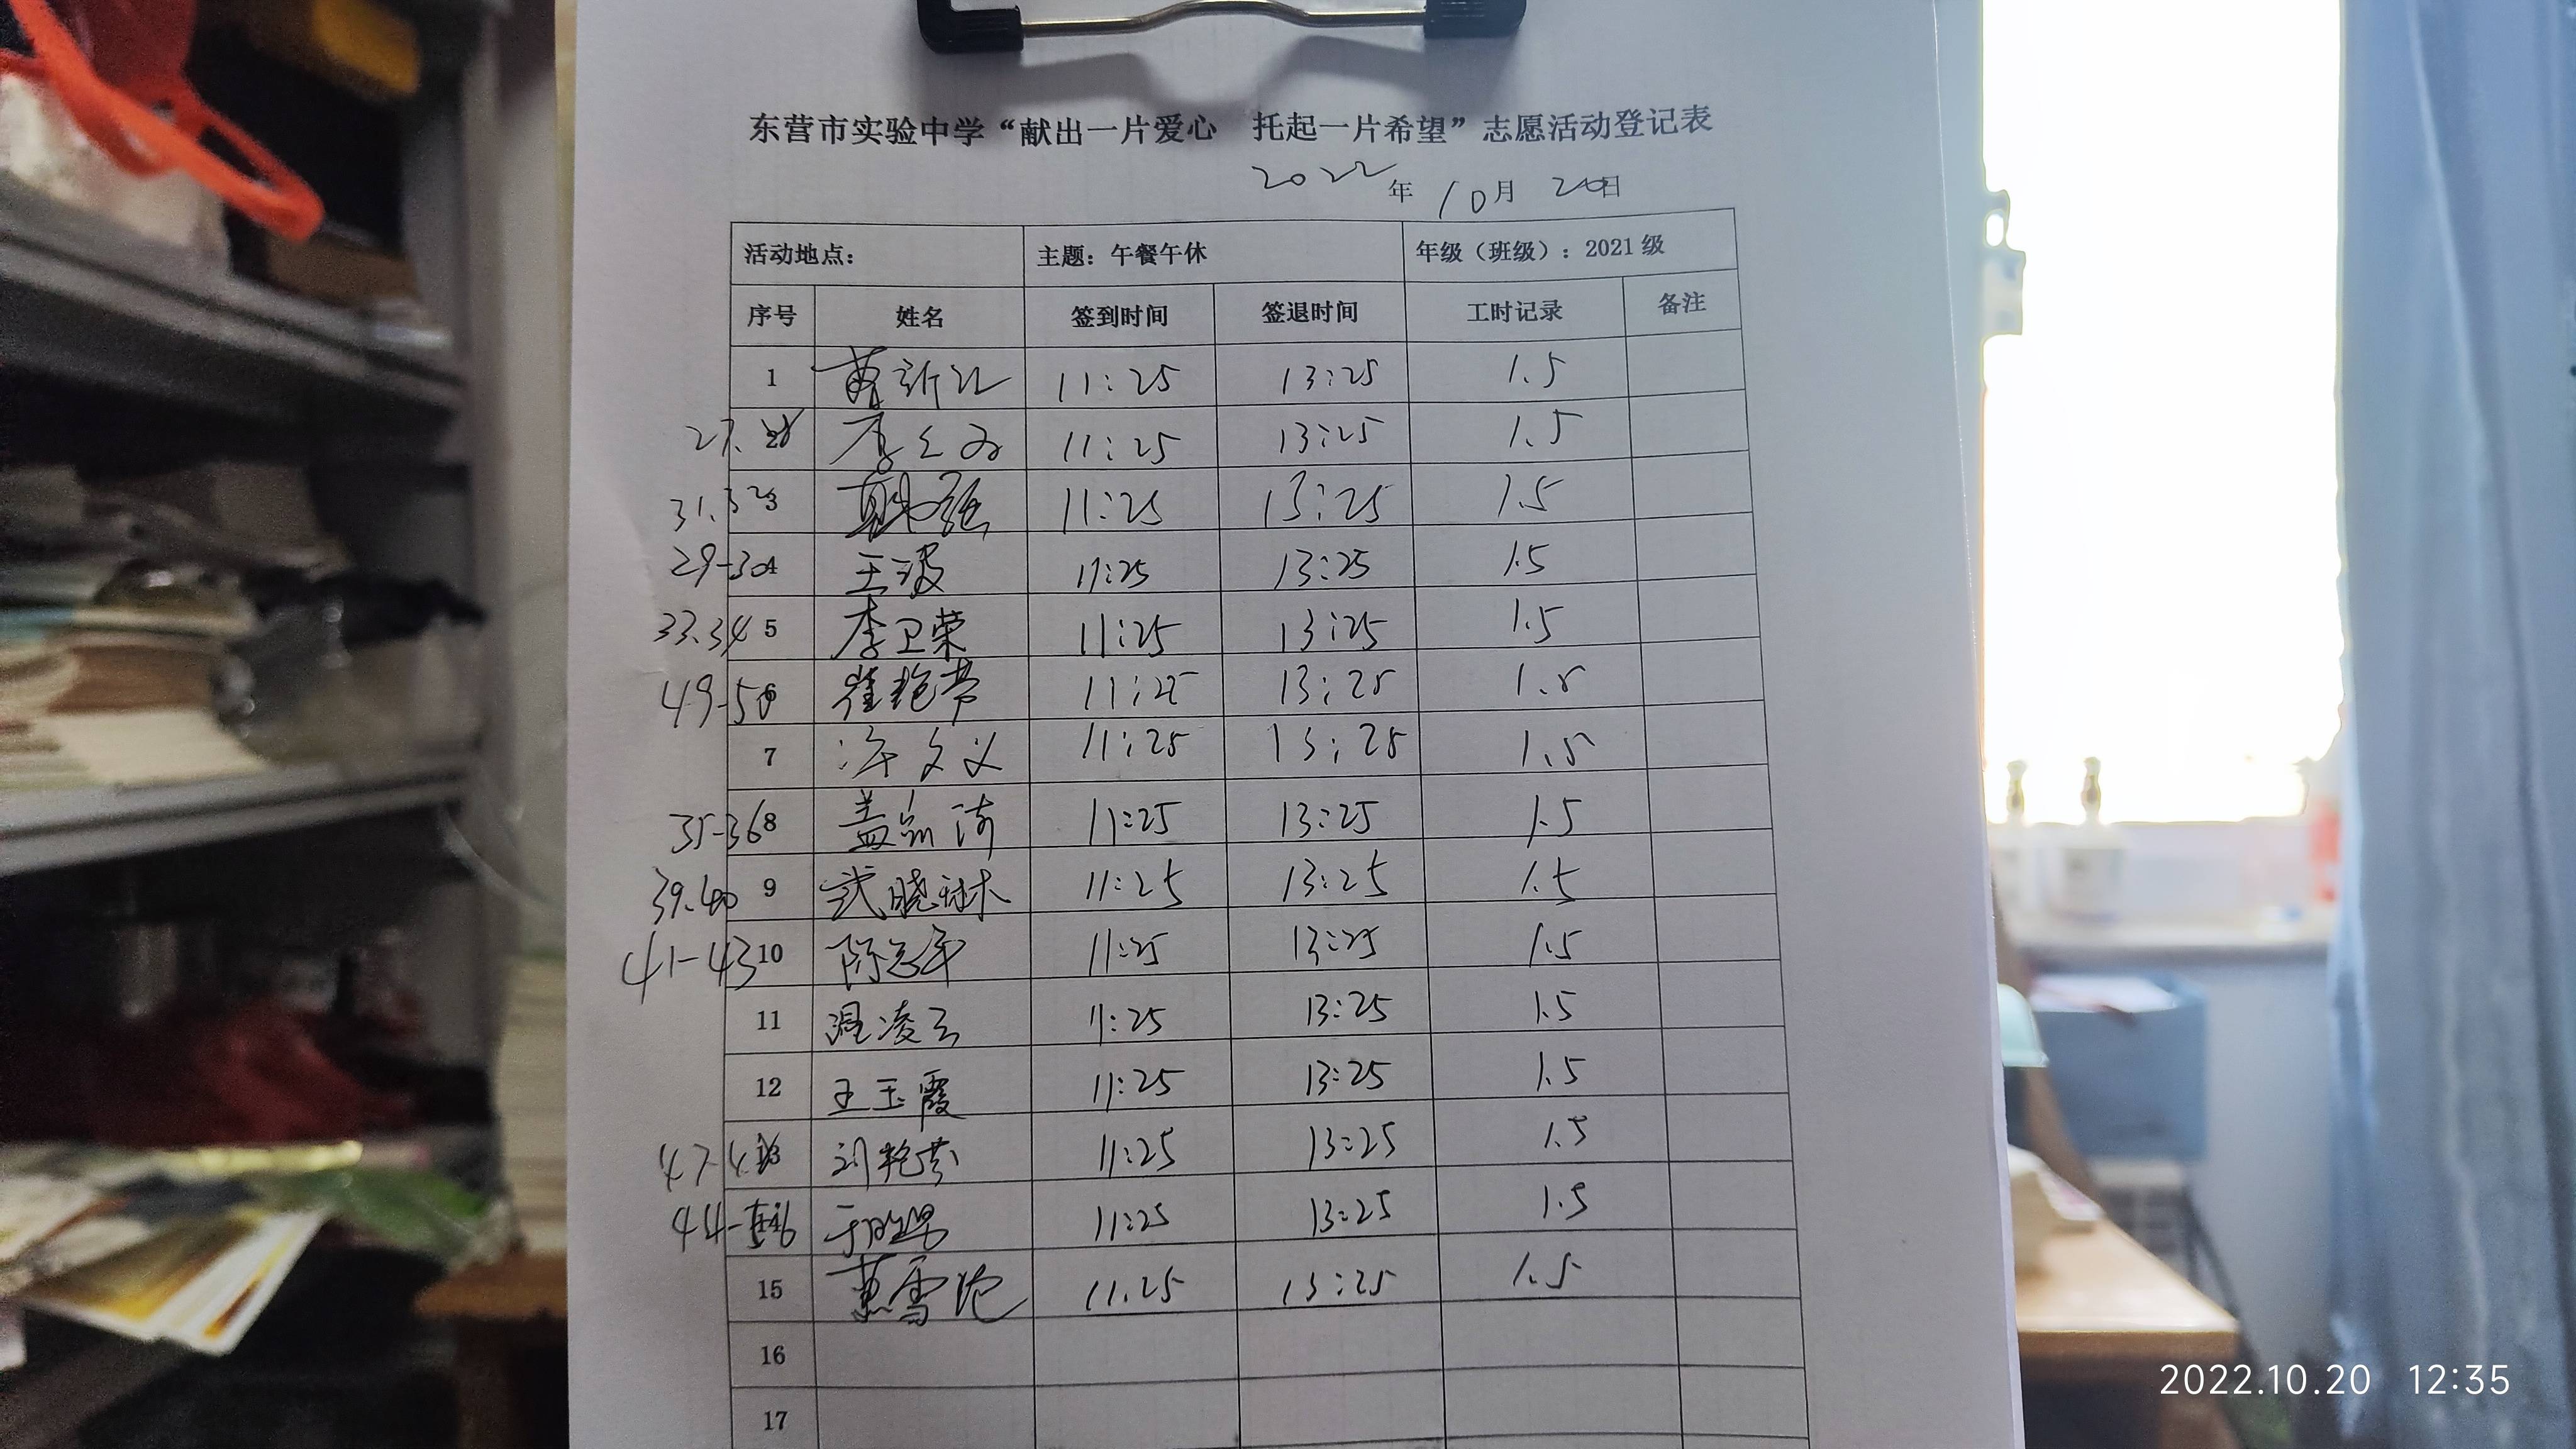 东营市实验中学“献出一片爱心 托起一片希望”志愿活动登记表
2022年 10月 20日
活动地点： 主题：午餐午休 年级（班级）：2021级
序号 姓名 签到时间 签退时间 工时记录 备注
1 11:25 13:25 1.5
27. 李 11:25 13:25 1.5
31.32 3 11:25 13:25 1.5
29-30 4 王波 11:25 13:25 1.5
33.34 5 李卫荣 11:25 13:25 1.5
49-50 6 崔艳芳 11:25 13:25 1.5
7 许文义 11:25 13:25 1.5
35-36 8 盖 11:25 13:25 1.5
39.40 9 武晓琳 11:25 13:25 1.5
41-43 10 陈志军 11:25 13:25 1.5
11 温凌云 11:25 13:25 1.5
12 王玉霞 11:25 13:25 1.5
47-48 13 刘艳芬 11:25 13:25 1.5
44- 于 11:25 13:25 1.5
15 雪 11.25 13:25 1.5
16
17
2022.10.20 12:35